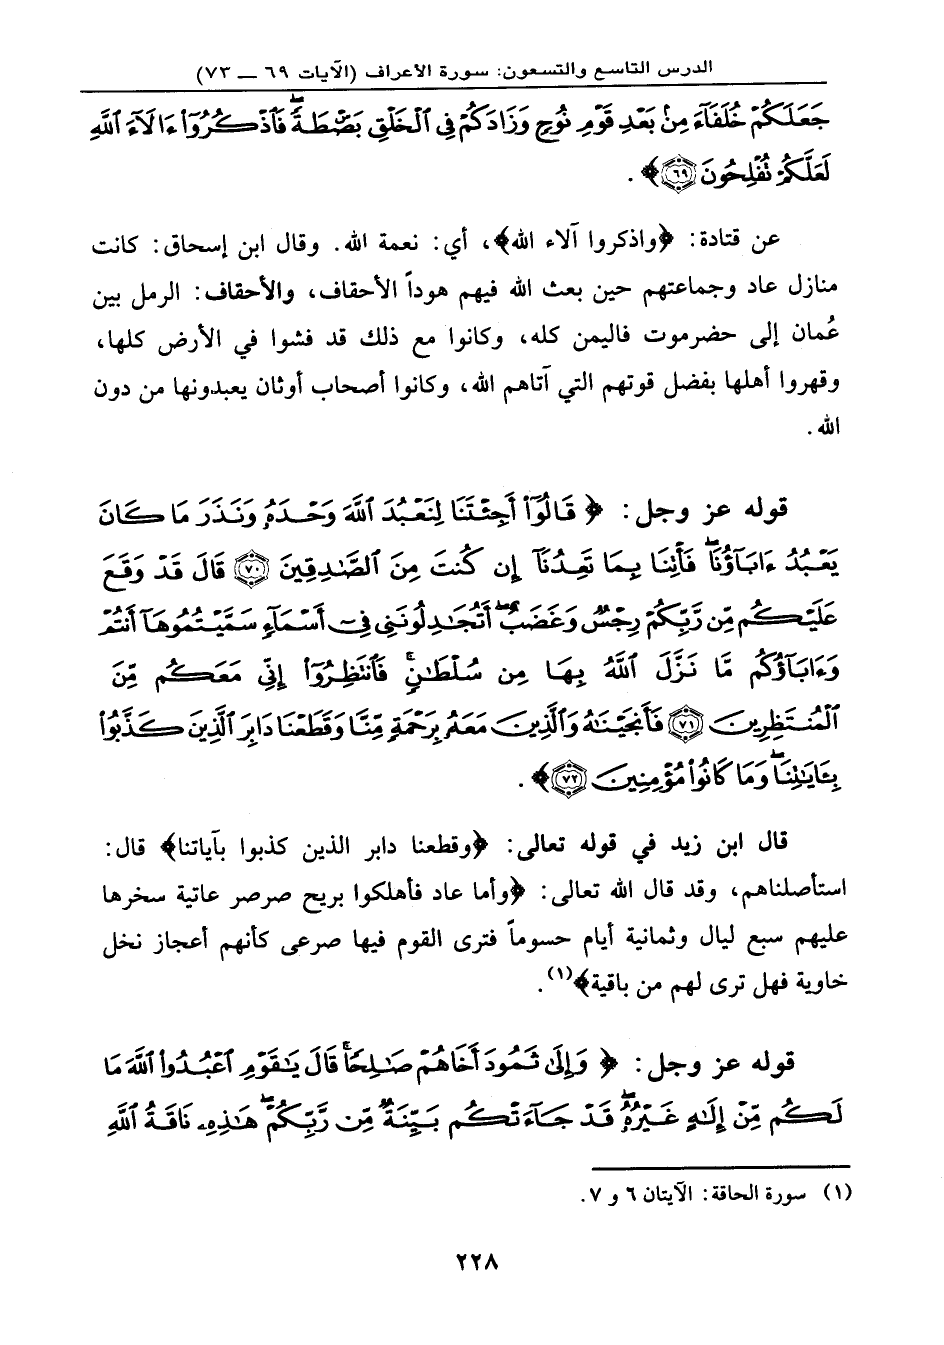 الدرس التاسع والتسعون: سورة الأعراف (الآيات ٦٩ ــ ٧٣)
جَعَلَكُمْ خُلَفَآءَ مِنۢ بَعْدِ قَوْمِ نُوحٍ وَزَادَكُمْ فِى ٱلْخَلْقِ بَصْۜطَةً ۖ فَٱذْكُرُوٓا۟ ءَالَآءَ ٱللَّهِ
لَعَلَّكُمْ تُفْلِحُونَ ﴿٦٩﴾ ﴾ .
عن قتادة: ﴿واذكروا آلاء الله﴾، أي: نعمة الله. وقال ابن إسحاق: كانت
منازل عاد وجماعتهم حين بعث الله فيهم هوداً الأحقاف، والأحقاف: الرمل بين
عُمان إلى حضرموت فاليمن كله، وكانوا مع ذلك قد فشوا في الأرض كلها،
وقهروا أهلها بفضل قوتهم التي آتاهم الله، وكانوا أصحاب أوثان يعبدونها من دون
الله.
قوله عز وجل: ﴿ قَالُوٓا۟ أَجِئْتَنَا لِنَعْبُدَ ٱللَّهَ وَحْدَهُۥ وَنَذَرَ مَا كَانَ
يَعْبُدُ ءَابَآؤُنَا ۖ فَأْتِنَا بِمَا تَعِدُنَآ إِن كُنتَ مِنَ ٱلصَّـٰدِقِينَ ﴿٧٠﴾ قَالَ قَدْ وَقَعَ
عَلَيْكُم مِّن رَّبِّكُمْ رِجْسٌ وَغَضَبٌ ۖ أَتُجَـٰدِلُونَنِى فِىٓ أَسْمَآءٍ سَمَّيْتُمُوهَآ أَنتُمْ
وَءَابَآؤُكُم مَّا نَزَّلَ ٱللَّهُ بِهَا مِن سُلْطَـٰنٍ ۚ فَٱنتَظِرُوٓا۟ إِنِّى مَعَكُم مِّنَ
ٱلْمُنتَظِرِينَ ﴿٧١﴾ فَأَنجَيْنَـٰهُ وَٱلَّذِينَ مَعَهُۥ بِرَحْمَةٍ مِّنَّا وَقَطَعْنَا دَابِرَ ٱلَّذِينَ كَذَّبُوا۟
بِـَٔايَـٰتِنَا ۖ وَمَا كَانُوا۟ مُؤْمِنِينَ ﴿٧٢﴾ ﴾ .
قال ابن زيد في قوله تعالى: ﴿وقطعنا دابر الذين كذبوا بآياتنا﴾ قال:
استأصلناهم، وقد قال الله تعالى: ﴿وأما عاد فأهلكوا بريح صرصر عاتية سخرها
عليهم سبع ليال وثمانية أيام حسوماً فترى القوم فيها صرعى كأنهم أعجاز نخل
خاوية فهل ترى لهم من باقية﴾(١).
قوله عز وجل: ﴿ وَإِلَىٰ ثَمُودَ أَخَاهُمْ صَـٰلِحًا ۗ قَالَ يَـٰقَوْمِ ٱعْبُدُوا۟ ٱللَّهَ مَا
لَكُم مِّنْ إِلَـٰهٍ غَيْرُهُۥ ۖ قَدْ جَآءَتْكُم بَيِّنَةٌ مِّن رَّبِّكُمْ ۖ هَـٰذِهِۦ نَاقَةُ ٱللَّهِ
(١) سورة الحاقة: الآيتان ٦ و ٧.
٢٢٨